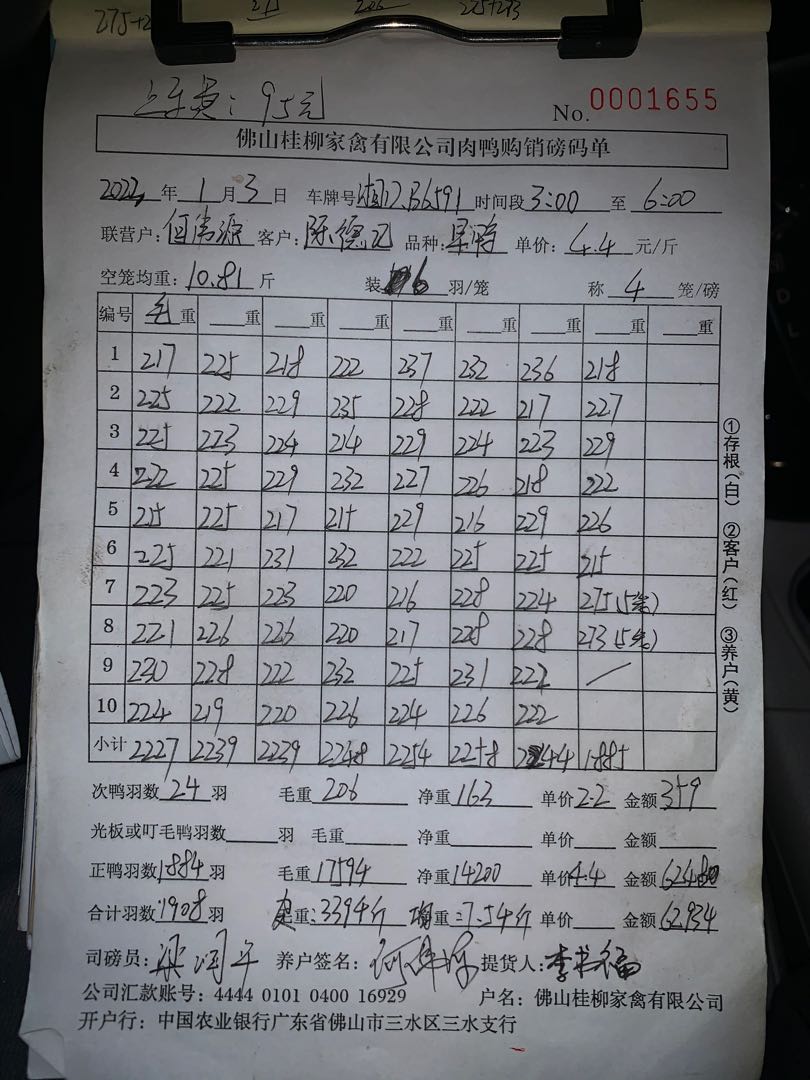 275+2 275 226 275+273
上车费：95元
No. 0001655
佛山桂柳家禽有限公司肉鸭购销磅码单
2022年 1月3日 车牌号 湘D.B6591 时间段 3:00 至 6:00
联营户： 客户：陈德 品种： 单价：4.4 元/斤
空笼均重：10.81 斤 装 6 羽/笼 称 4 笼/磅
编号 毛重 重 重 重 重 重 重 重 重
1 217 225 218 222 237 232 236 218
2 225 222 229 235 228 222 217 227
3 225 223 224 214 229 224 223 229
4 222 225 229 232 227 226 218 222
5 215 225 217 215 229 216 229 226
6 225 221 231 232 222 225 225 215
7 223 225 223 220 216 228 224 275(5笼)
8 221 226 226 220 217 228 228 273(5笼)
9 230 228 222 232 225 231 222 /
10 224 219 220 226 224 226 222
小计 2227 2239 2239 2248 2254 2258 2244 1885
次鸭羽数 24 羽 毛重 206 净重 163 单价 2.2 金额 359
光板或叮毛鸭羽数 羽 毛重 净重 单价 金额
正鸭羽数 1884 羽 毛重 17594 净重 14200 单价 4.4 金额 62480
合计羽数 1908 羽 重：3394斤 重：7.54斤 单价 金额 62934
司磅员：梁润 养户签名： 提货人：李 福
公司汇款账号：4444 0101 0400 16929 户名：佛山桂柳家禽有限公司
开户行：中国农业银行广东省佛山市三水区三水支行
①存根（白） ②客户（红） ③养户（黄）